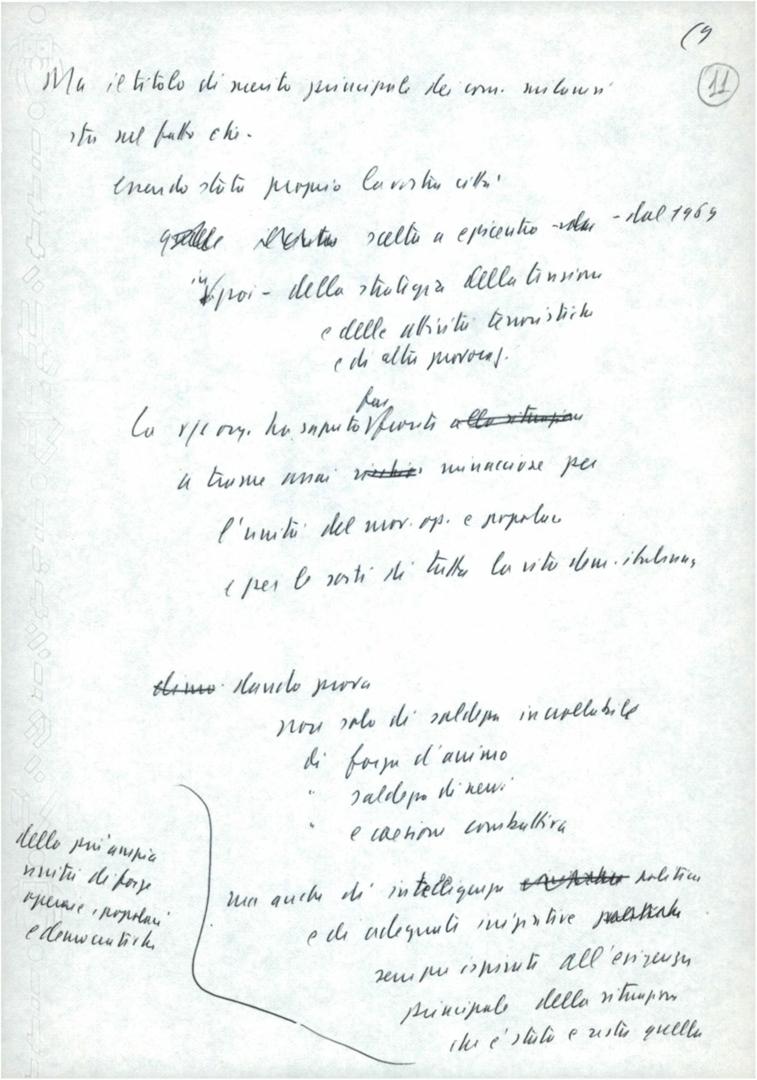 11
Ma il titolo di merito principale dei com. milanesi
sta nel fatto che -
essendo stata proprio la vostra città
scelta a epicentro - dal 1969
in poi - della strategia della tensione
e delle attività terroristiche
e di altre provocaz.
La vs/ org. ha saputo far fronte alla situazione
a trame assai minacciose per
l'unità del mov. op. e popolare
e per le sorti di tutta la vita dem. italiana,
dando prova
non solo di saldezza incrollabile
di forza d'animo
" saldezza di nervi
" e coesione combattiva
ma anche di intelligenza politica
e di adeguate iniziative politiche
sempre ispirate all'esigenza
principale della situazione
che è stata e resta quella
della più ampia
unità di forze
operaie e popolari
e democratiche